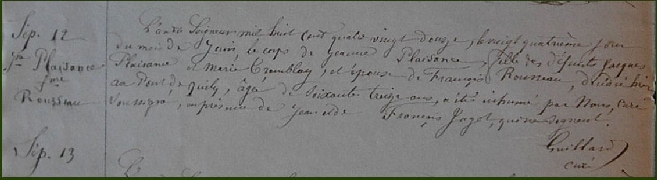 Sép. 12
Jne Plaisance
fme
Rousseau
L'an du Seigneur mil huit cent quatre vingt douze, le vingt quatrième jour
du mois de Juin le corps de Jeanne Plaisance, fille des défunts Jacques
Plaisance et Marie Tremblay, et épouse de François Rousseau, décédée hier
au Pont de , âgée de soixante treize ans, a été inhumé par Nous, curé
soussigné, en présence de Jean et de François Jagot, qui ne signent.
Guillard
curé
Sép. 13